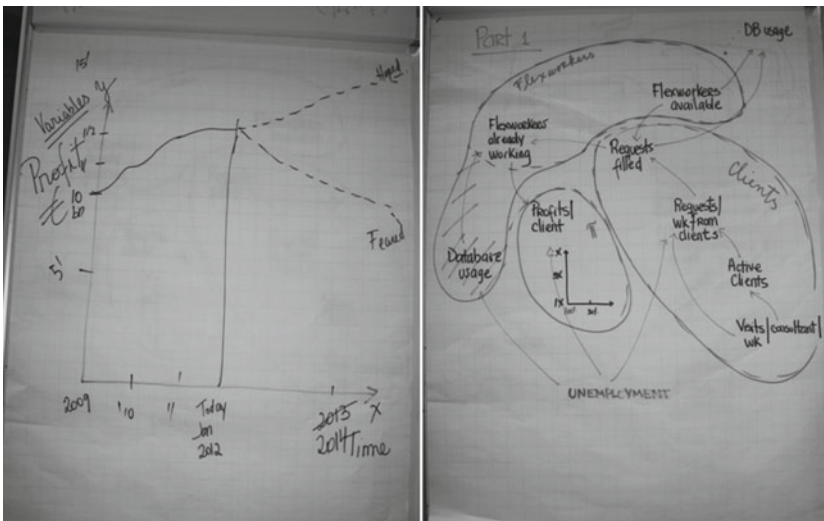 15'
y
Variables
1/2
Profit
£
10
bn
5'
Hoped
Feared
2009
'10
11
Today
Jan
2012
2013
2014
X
Time
Part 1
DB usage
Flexworkers
Flexworkers
available
Flexworkers
already
working
Requests
filled
Clients
Profits/
client
Requests/
wk from
clients
Database
usage
Active
Clients
1x
Visits/consultant/
wk
UNEMPLOYMENT